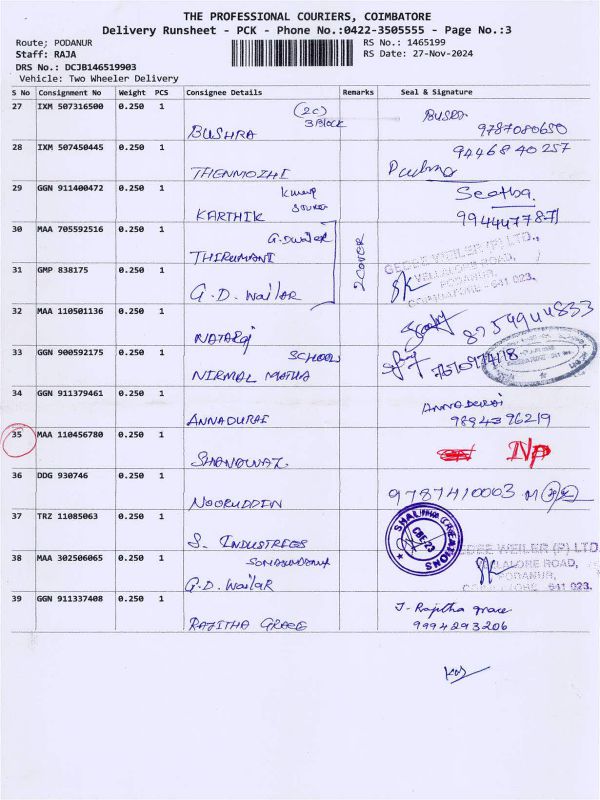 THE PROFESSIONAL COURIERS, COIMBATORE
Delivery Runsheet - PCK - Phone No.:0422-3505555 - Page No.:3
Route; PODANUR
RS No.: 1465199
Staff: RAJA
RS Date: 27-Nov-2024
DRS No.: DCJB146519903
Vehicle: Two Wheeler Delivery
S No Consignment No Weight PCS Consignee Details Remarks Seal & Signature
27 IXM 507316500 0.250 1
(2C)
3 BLOCK
BUSHRA
9787080650
28 IXM 507450445 0.250 1
THENMOZHI
9446840257
29 GGN 911400472 0.250 1
KARTHIK
30 MAA 705592516 0.250 1
G.D wailer
THIRUMANI
2 COVER
GEDEE WEILER (P) LTD.,
VELLALORE ROAD,
PODANUR,
COIMBATORE - 641 023.
31 GMP 838175 0.250 1
G.D. Wailar
32 MAA 110501136 0.250 1
NATARAj
8754944833
33 GGN 900592175 0.250 1
SCHOOL
NIRMAL MATHA
34 GGN 911379461 0.250 1
ANNADURAI
ANNADURAI
9894396219
35 MAA 110456780 0.250 1
SHANAWAZ
NP
36 DDG 930746 0.250 1
NOORUDDIN
9787410003
37 TRZ 11085063 0.250 1
S. INDUSTREES
CREATIONS
CBE-23
38 MAA 302506065 0.250 1
G.D. Wailar
GEDEE WEILER (P) LTD
VELLALORE ROAD,
PODANUR,
COIMBATORE - 641 023.
39 GGN 911337408 0.250 1
RAJITHA GRACE
J- Rajitha grace
9994293206